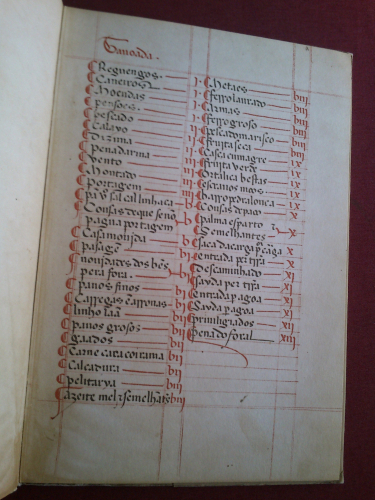 Tauoada.
Reguengos. j.
Caneiros j.
Moendas j.
pensoẽs. j.
pescado j.
Calayo ij
Dizima ij
pena darma ij
Vento iij
Montado iij
portagem iij
pã vº sal cal linhaça b
Cousas de que se nõ
pagua portagem b
Casa mouida b
pasagẽ b
nouidades dos bẽs
pera fora. bj
panos finos bj
Carregas & arrouas bj
linho laã bij
panos grosos bij
gaados bij
Carne caça coirama bij
Calçadura biij
pelitarya biij
azeite mel & semelhãts biij
Metaes biij
ferro laurado biij
Armas biij
ferro groso biij
pescado marisco biij
fruita seca biij
Casca çumagre ix
fruita verde ix
ortaliça bestas ix
escrauos mos ix
barro pedra louça ix
Cousas de pao x
palma esparto &
Semelhantes x
saca da carga pº cãga x
entrada pr trra xj
Descaminhado xj
Sayda per trra xj
entrada p agoa xj
Sayda p agoa xj
priuiligiados xij
Pena do foral xiij